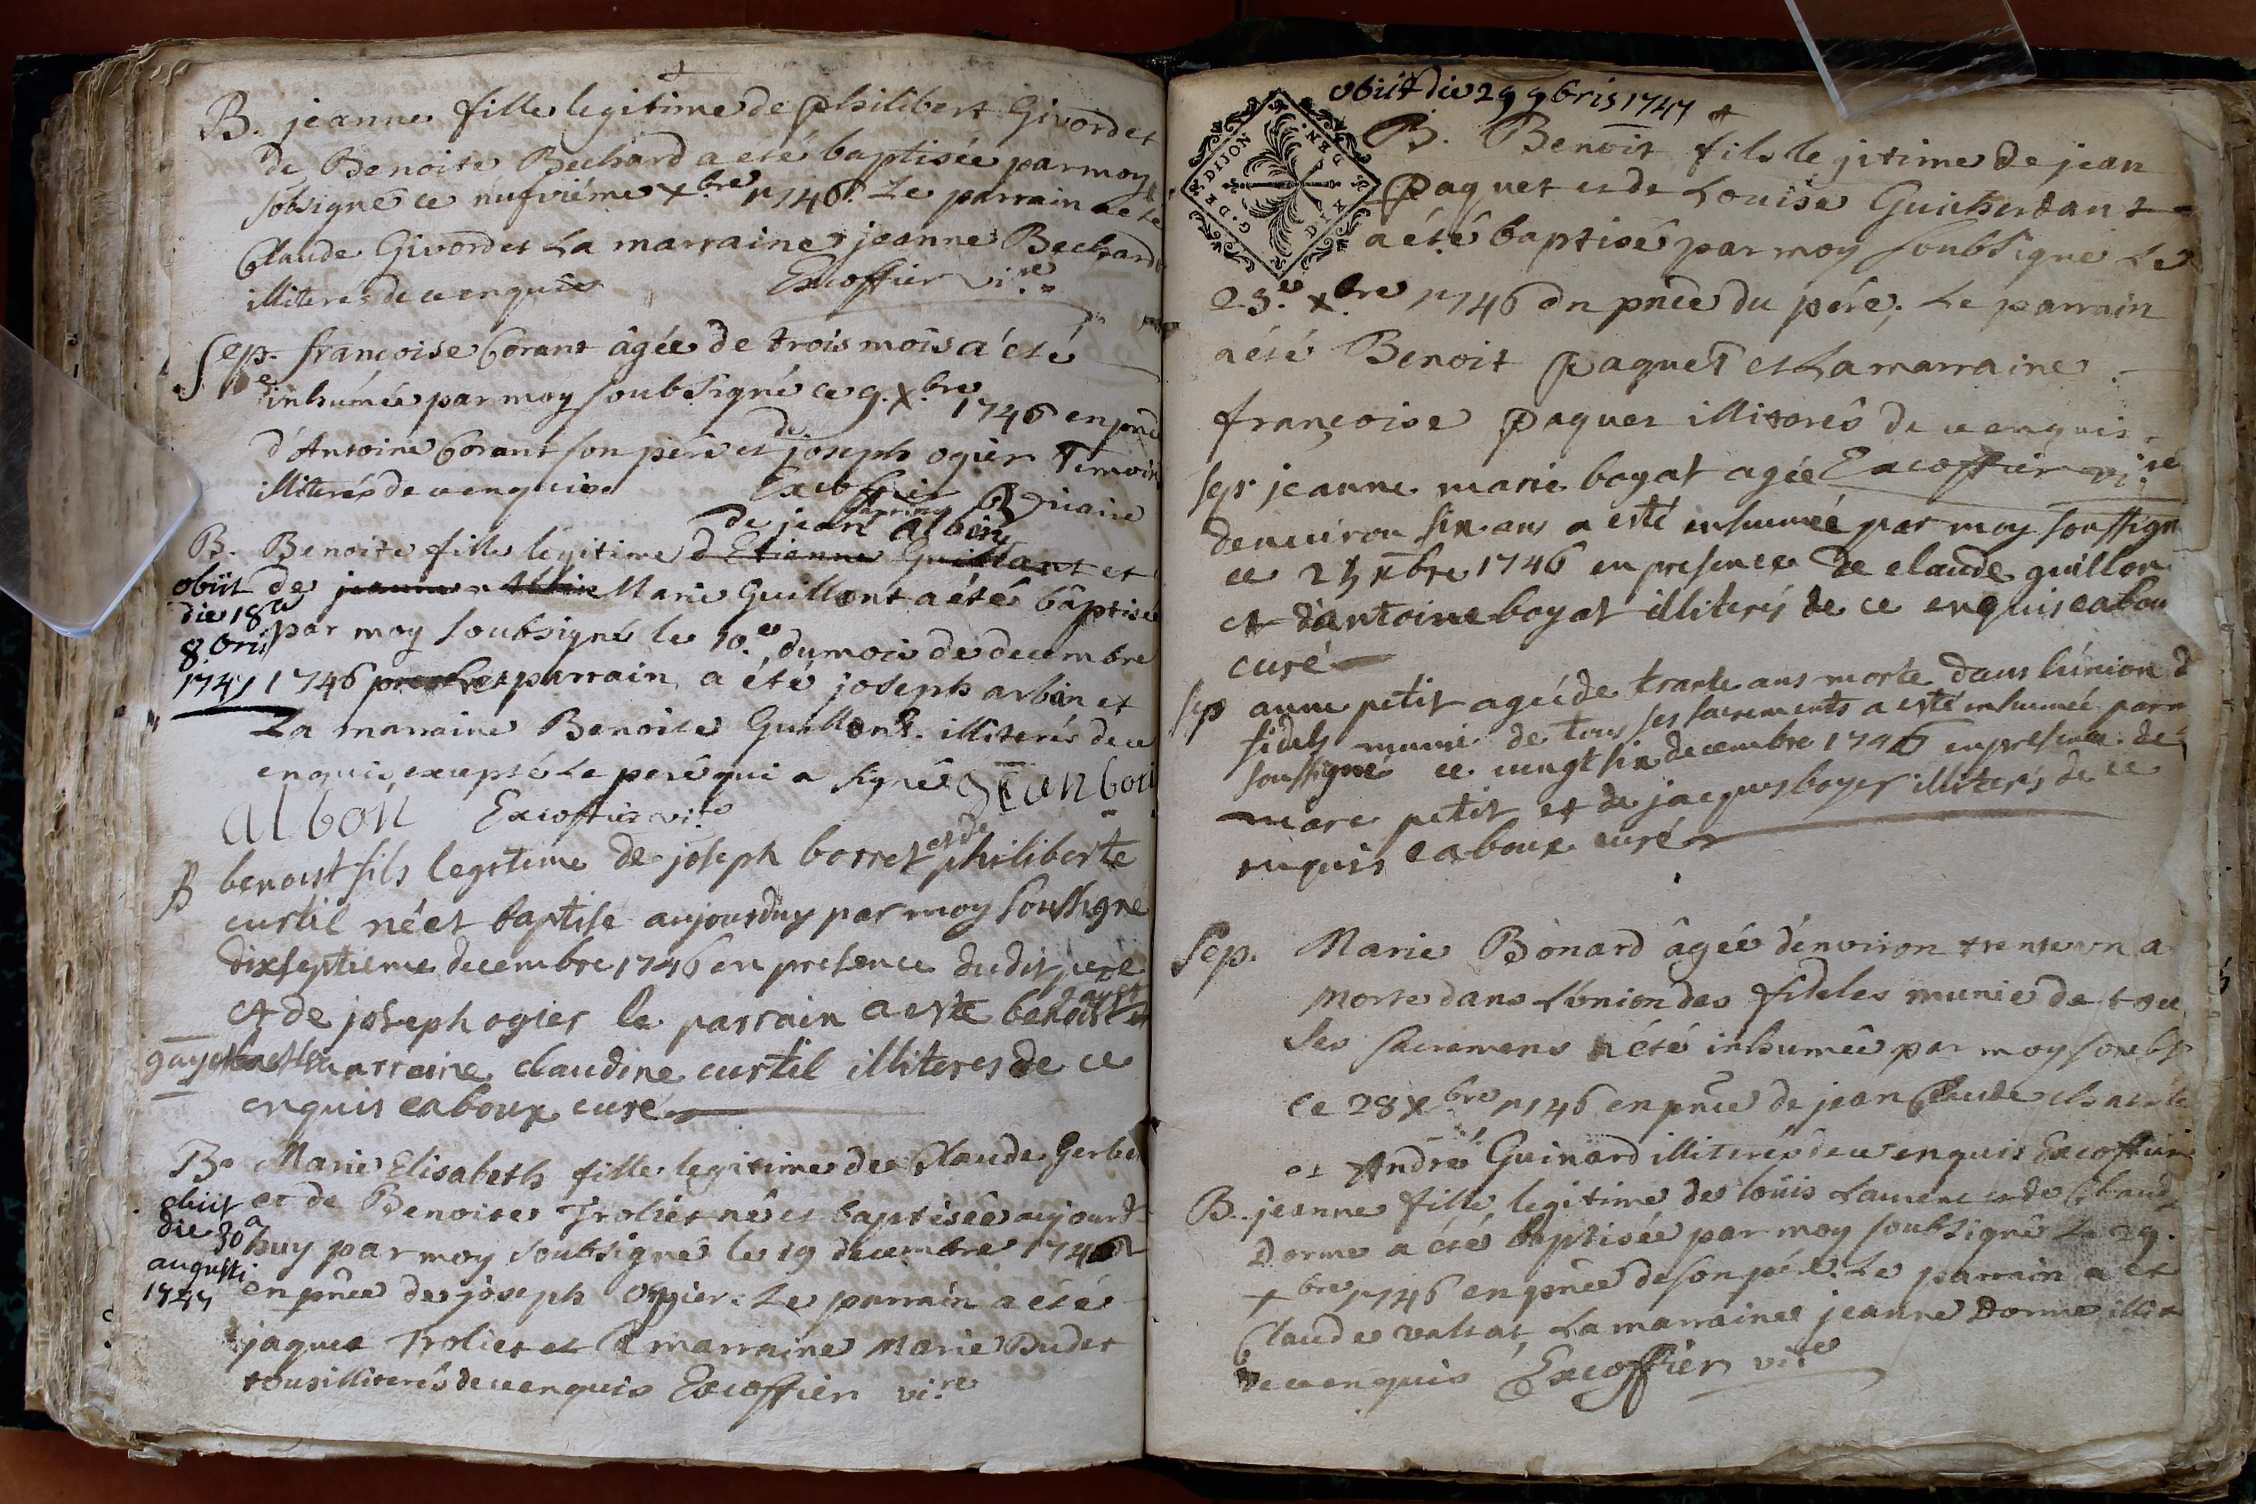 B. jeanne fille legitime de philibert Givordet
de Benoite Bechard a été baptisée par moy
sobsigné ce nufviéme xbre 1746. Le parrain a été
Claude Givordet La marraine jeanne Bechard
illiterés de ce enquis Excoffier vi.re
Sep. françoise Corant âgée de trois mois a été
inhumée par moy soubsigné ce 9. xbre 1746 en pnce
d'Antoine Corant son pére et de joseph ogier Temoins
illiterés de ce enquis Excoffier vicaire
de jean albin
B. Benoite fille legitime d'Etienne Guillant et
obiit de jeanne Albin Marie Guillont a été bâptisée
die 18a par moy soubsigné le 10.e du mois de decembre
8bris
1747 1746 parrain a été joseph arbin et
La marraine Benoite Guillont. illiterés de ce
enquis excepté Le pere qui a signé Jean
albon Excoffier vi.re
B benoist fils legitime de joseph borret et de philiberte
curtil né et baptise aujourduy par moy soussigne
dixseptieme decembre 1746 en presence dudit pere
et de joseph ogier le parrain a este benoist
gayet marraine claudine curtil illiteres de ce
enquis caboux curé
B. Marie Elisabeth fille legitime de Claude Gerbet
obiit et de Benoite Troliet né et baptisée aujourd
die 30a huy par moy soubsigné le 19 decembre 1746
augusti
1747 en pnce de joseph Ogier. Le parrain a été
jaques Troliet et la marraine Marie Dudet
tous illiterés de ce enquis Excoffier vi.re
obiit die 29 9bris 1747
G. DE DIJON
B. Benoit fils legitime de jean
Paquet et de Louise Guichertant
a été baptisé par moy soubsigné Le
25.e xbre 1746 en pnce du pére, Le parrain
a été Benoit Paquet et La marraine
françoise Paquet illiterés de ce enquis
Excoffier vi.re
sep. jeanne marie bayat agée
denviron six ans a esté inhumée par moy soussign
ce 25 xbre 1746 en presence de claude guillon
et d'antoine bayat illiterés de ce enquis cabou
curé
sep anne petit agée de trante ans morte dans lunion d
fidels munie de tous ses sacrements a esté inhumée par m
soussigné ce vingt six decembre 1746 en presence de
marc petit et de jacques boyer illiterés de ce
enquis caboux curé
Sep. Marie Bonard âgée d'environ trente un a
morte dans L'union des fideles munie de tou
Les sacremens a été inhumée par moy soubs
Ce 28 xbre 1746 en pnce de jean Claude
et André Guinard illiterés de ce enquis Excoffier
B. jeanne fille legitime de loüis Laurent et de Claud
Dorme a été baptisée par moy soubsigné Le 29.
xbre 1746 en pnce de son pére. Le parrain a ét
Claude valtat La marraine jeanne Dorme illit
de ce enquis Excoffier vi.re